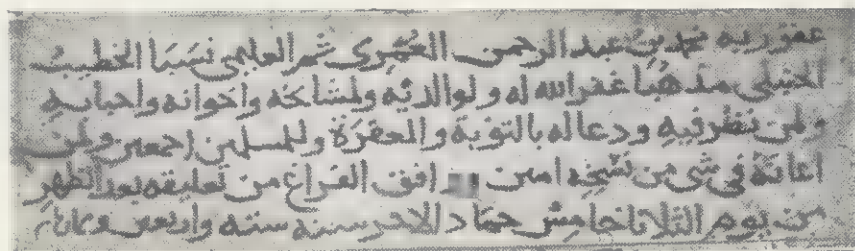 عفو ربه محمد بن عبد الرحمن العمري ثم العليمي نسبا الخطيب
الحنبلي مذهبا غفر الله له ولوالديه ولمشايخه واخوانه واحبابه
ولمن نظر فيه ودعا له بالتوبة والمغفرة وللمسلمين اجمعين ولمن
اعانه في شي من نسخه امين وافق الفراغ من تعليقه بعد الظهر
من يوم الثلاثا خامس جماد الاخر سنة ستة واربعين وثمان